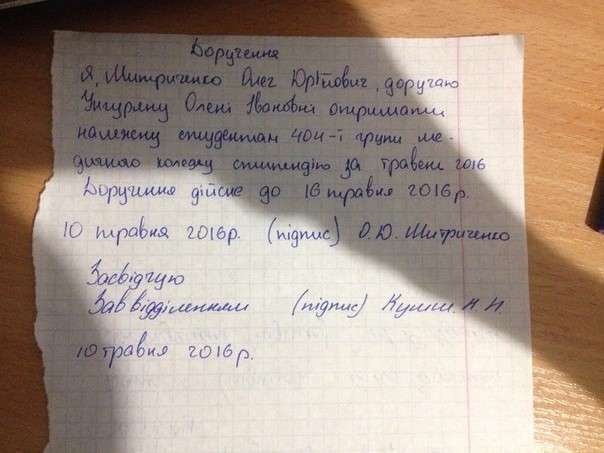 Доручення
Я, Митриченко Олег Юрійович, доручаю
Унгуряну Олені Івановні отримати
належну студентам 404-ї групи ме-
дичного коледжу стипендію за травень 2016
Доручення дійсне до 16 травня 2016р.
10 травня 2016р. (підпис) О.Ю. Митриченко
Засвідчую
Зав відділенням (підпис) Куліш. Н. И.
10 травня 2016р.